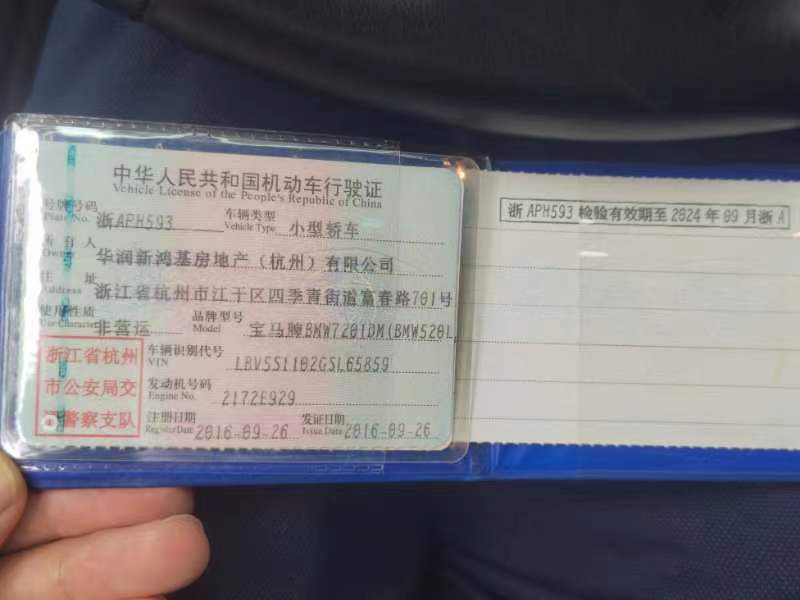 中华人民共和国机动车行驶证
Vehicle License of the People's Republic of China
号牌号码 浙APH593 车辆类型 小型轿车
Plate No. Vehicle Type
所有人 华润新鸿基房地产（杭州）有限公司
Owner
住址 浙江省杭州市江干区四季青街道富春路701号
Address
使用性质 非营运 品牌型号 宝马牌BMW7201DM(BMW520L
Use Character Model
浙江省杭州
市公安局交
警察支队
车辆识别代号 LBV5S1102GSL65859
VIN
发动机号码 2172E929
Engine No.
注册日期 2016-09-26 发证日期 2016-09-26
Register Date Issue Date
浙APH593 检验有效期至2024年09月浙A